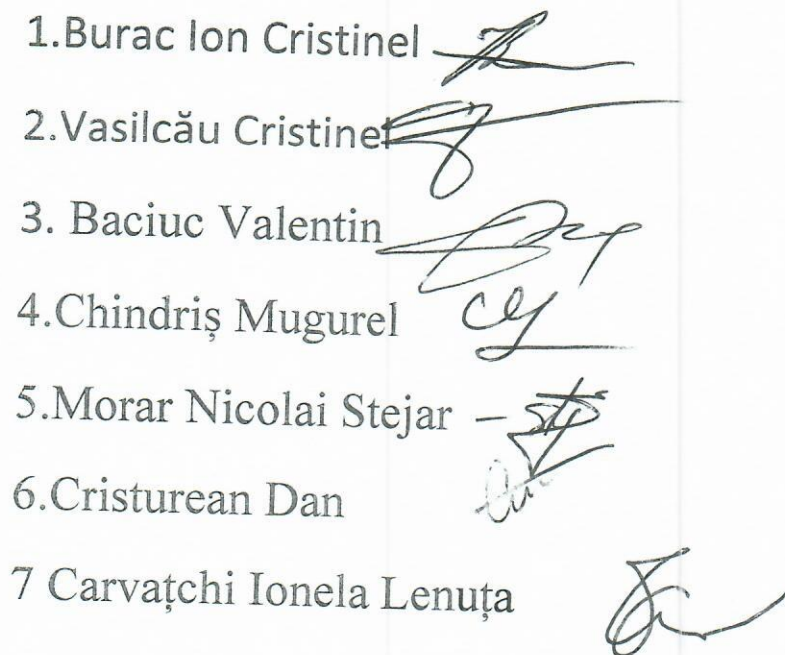 1.Burac Ion Cristinel
2.Vasilcău Cristinel
3. Baciuc Valentin
4.Chindriș Mugurel
5.Morar Nicolai Stejar –
6.Cristurean Dan
7 Carvațchi Ionela Lenuța